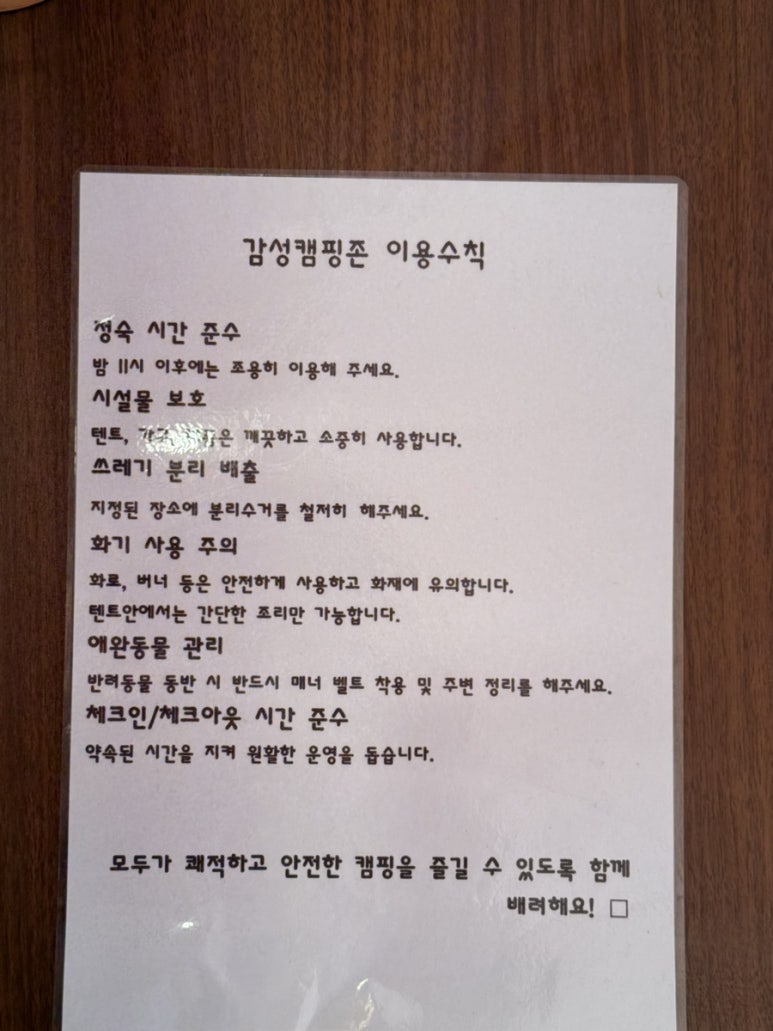 감성캠핑존 이용수칙
정숙 시간 준수
밤 11시 이후에는 조용히 이용해 주세요.
시설물 보호
텐트, 깨끗하고 소중히 사용합니다.
쓰레기 분리 배출
지정된 장소에 분리수거를 철저히 해주세요.
화기 사용 주의
화로, 버너 등은 안전하게 사용하고 화재에 유의합니다.
텐트안에서는 간단한 조리만 가능합니다.
애완동물 관리
반려동물 동반 시 반드시 매너 벨트 착용 및 주변 정리를 해주세요.
체크인/체크아웃 시간 준수
약속된 시간을 지켜 원활한 운영을 돕습니다.
모두가 쾌적하고 안전한 캠핑을 즐길 수 있도록 함께
배려해요! □